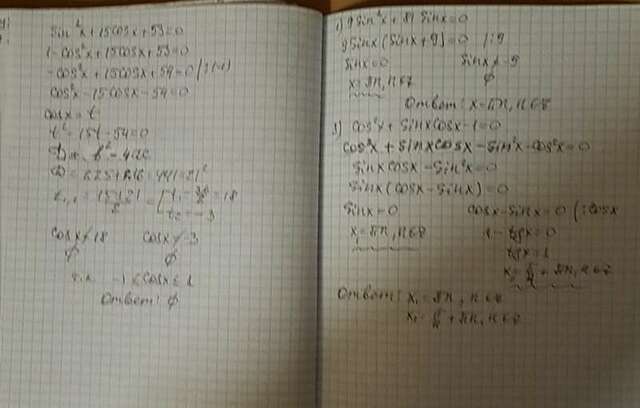 sin²x + 15cosx + 53 = 0
1 - cos²x + 15cosx + 53 = 0
-cos²x + 15cosx + 54 = 0 | :(-1)
cos²x - 15cosx - 54 = 0
cosx = t
t² - 15t - 54 = 0
D = b² - 4ac
= 441 = 21²
= 18
t₂ = -3
cosx ≠ 18 cosx ≠ -3
∅ ∅
-1 ≤ cosx ≤ 1
Ответ: ∅
1) 9sin²x + 81sinx = 0
9sinx(sinx + 9) = 0 | :9
sinx = 0 sinx ≠ -9
x = πn, n∈Z ∅
Ответ: x = πn, n∈Z
3) cos²x + sinxcosx - 1 = 0
cos²x + sinxcosx - sin²x - cos²x = 0
sinxcosx - sin²x = 0
sinx(cosx - sinx) = 0
sinx = 0 cosx - sinx = 0 | :cosx
x₁ = πn, n∈Z 1 - tgx = 0
tgx = 1
x₂ = π/4 + πn, n∈Z
Ответ: x₁ = πn, n∈Z
π/4 + πn, n∈Z